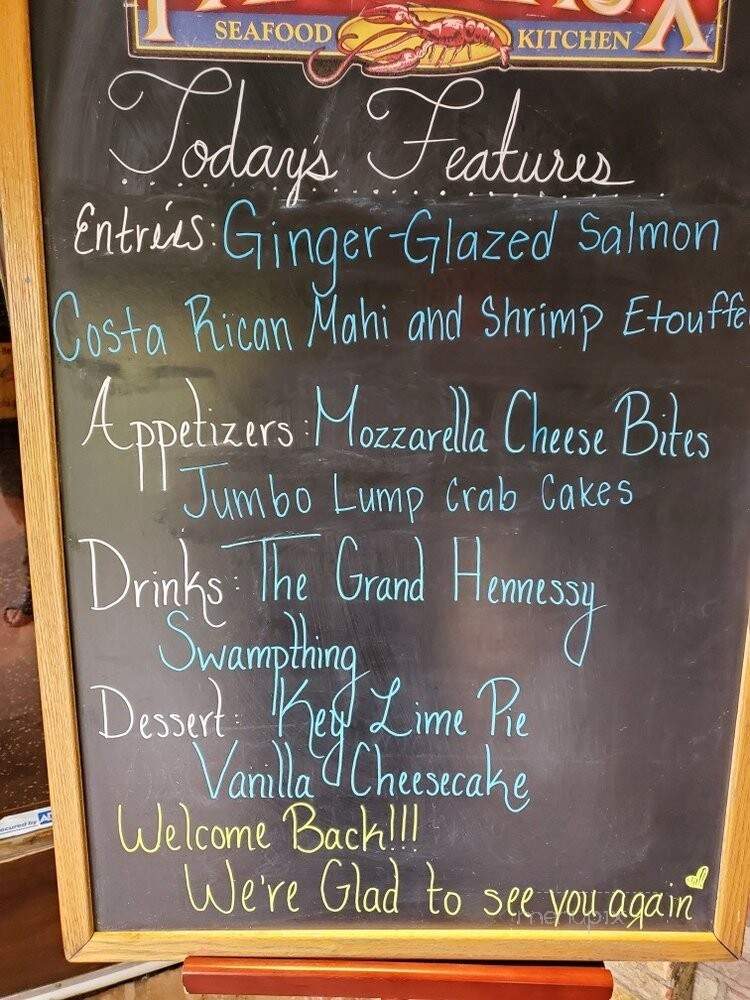 SEAFOOD KITCHEN
Today's Features
Entrées: Ginger-Glazed Salmon
Costa Rican Mahi and Shrimp Etouffe
Appetizers: Mozzarella Cheese Bites
Jumbo Lump Crab Cakes
Drinks: The Grand Hennessy
Swampthing
Dessert: Key Lime Pie
Vanilla Cheesecake
Welcome Back!!!
We're Glad to see you again
menupix